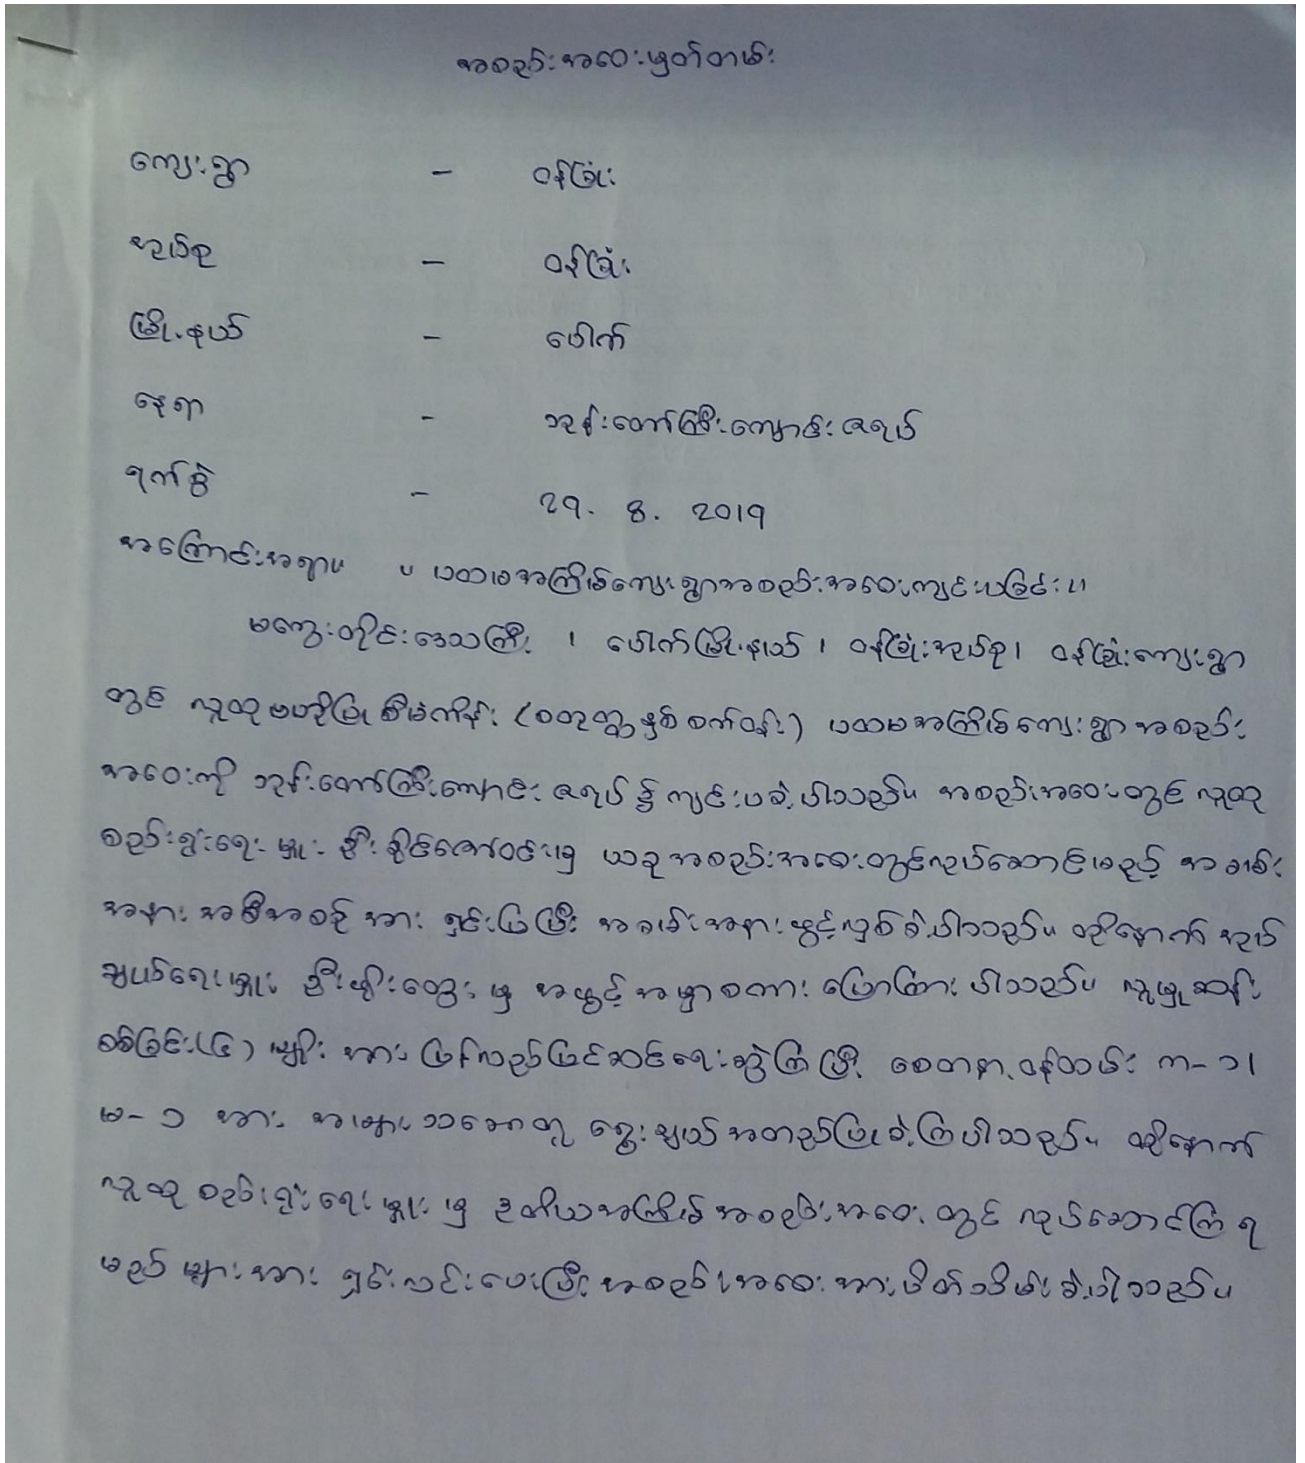 အစည်းအဝေးမှတ်တမ်း
ကျေးရွာ - ဝန်ခြုံး
အုပ်စု - ဝန်ခြုံး
မြို့နယ် - ပေါက်
နေရာ - ဘုန်းတော်ကြီးကျောင်းဇရပ်
ရက်စွဲ - 29. 8. 2019
အကြောင်းအရာ။ ။ ပထမအကြိမ်ကျေးရွာအစည်းအဝေးကျင်းပခြင်း။
မကွေးတိုင်းဒေသကြီး ၊ ပေါက်မြို့နယ် ၊ ဝန်ခြုံးအုပ်စု၊ ဝန်ခြုံးကျေးရွာ
တွင် လူထုဗဟိုပြုစီမံကိန်း (စတုတ္ထနှစ်စက်ဝန်း) ပထမအကြိမ်ကျေးရွာအစည်း
အဝေးကို ဘုန်းတော်ကြီးကျောင်းဇရပ်၌ ကျင်းပခဲ့ပါသည်။ အစည်းအဝေးတွင် လူထု
စည်းရုံးရေးမှူး ဦးစိုင်ဇော်ဝင်းမှ ယခုအစည်းအဝေးတွင်လုပ်ဆောင်မည့် အခမ်း
အနားအစီအစဉ်အား ရှင်းပြပြီး အခမ်းအနားဖွင့်လှစ်ခဲ့ပါသည်။ ထို့နောက် အုပ်
ချုပ်ရေးမှူး ဦးဖိုးထွေးမှ အဖွင့်အမှာစကား ပြောကြားပါသည်။ လူမှုဆန်း
စစ်ခြင်း(၄)မျိုးအား ပြန်လည်ပြင်ဆင်ရေးဆွဲကြပြီး စေတနာ့ဝန်ထမ်း က-၁၊
မ-၁ အား အများသဘောတူ ရွေးချယ်အတည်ပြုခဲ့ကြပါသည်။ ထို့နောက်
လူထုစည်းရုံးရေးမှူးမှ ဒုတိယအကြိမ်အစည်းအဝေးတွင် လုပ်ဆောင်ကြရ
မည်များအား ရှင်းလင်းပေးပြီး အစည်းအဝေးအားပိတ်သိမ်းခဲ့ပါသည်။